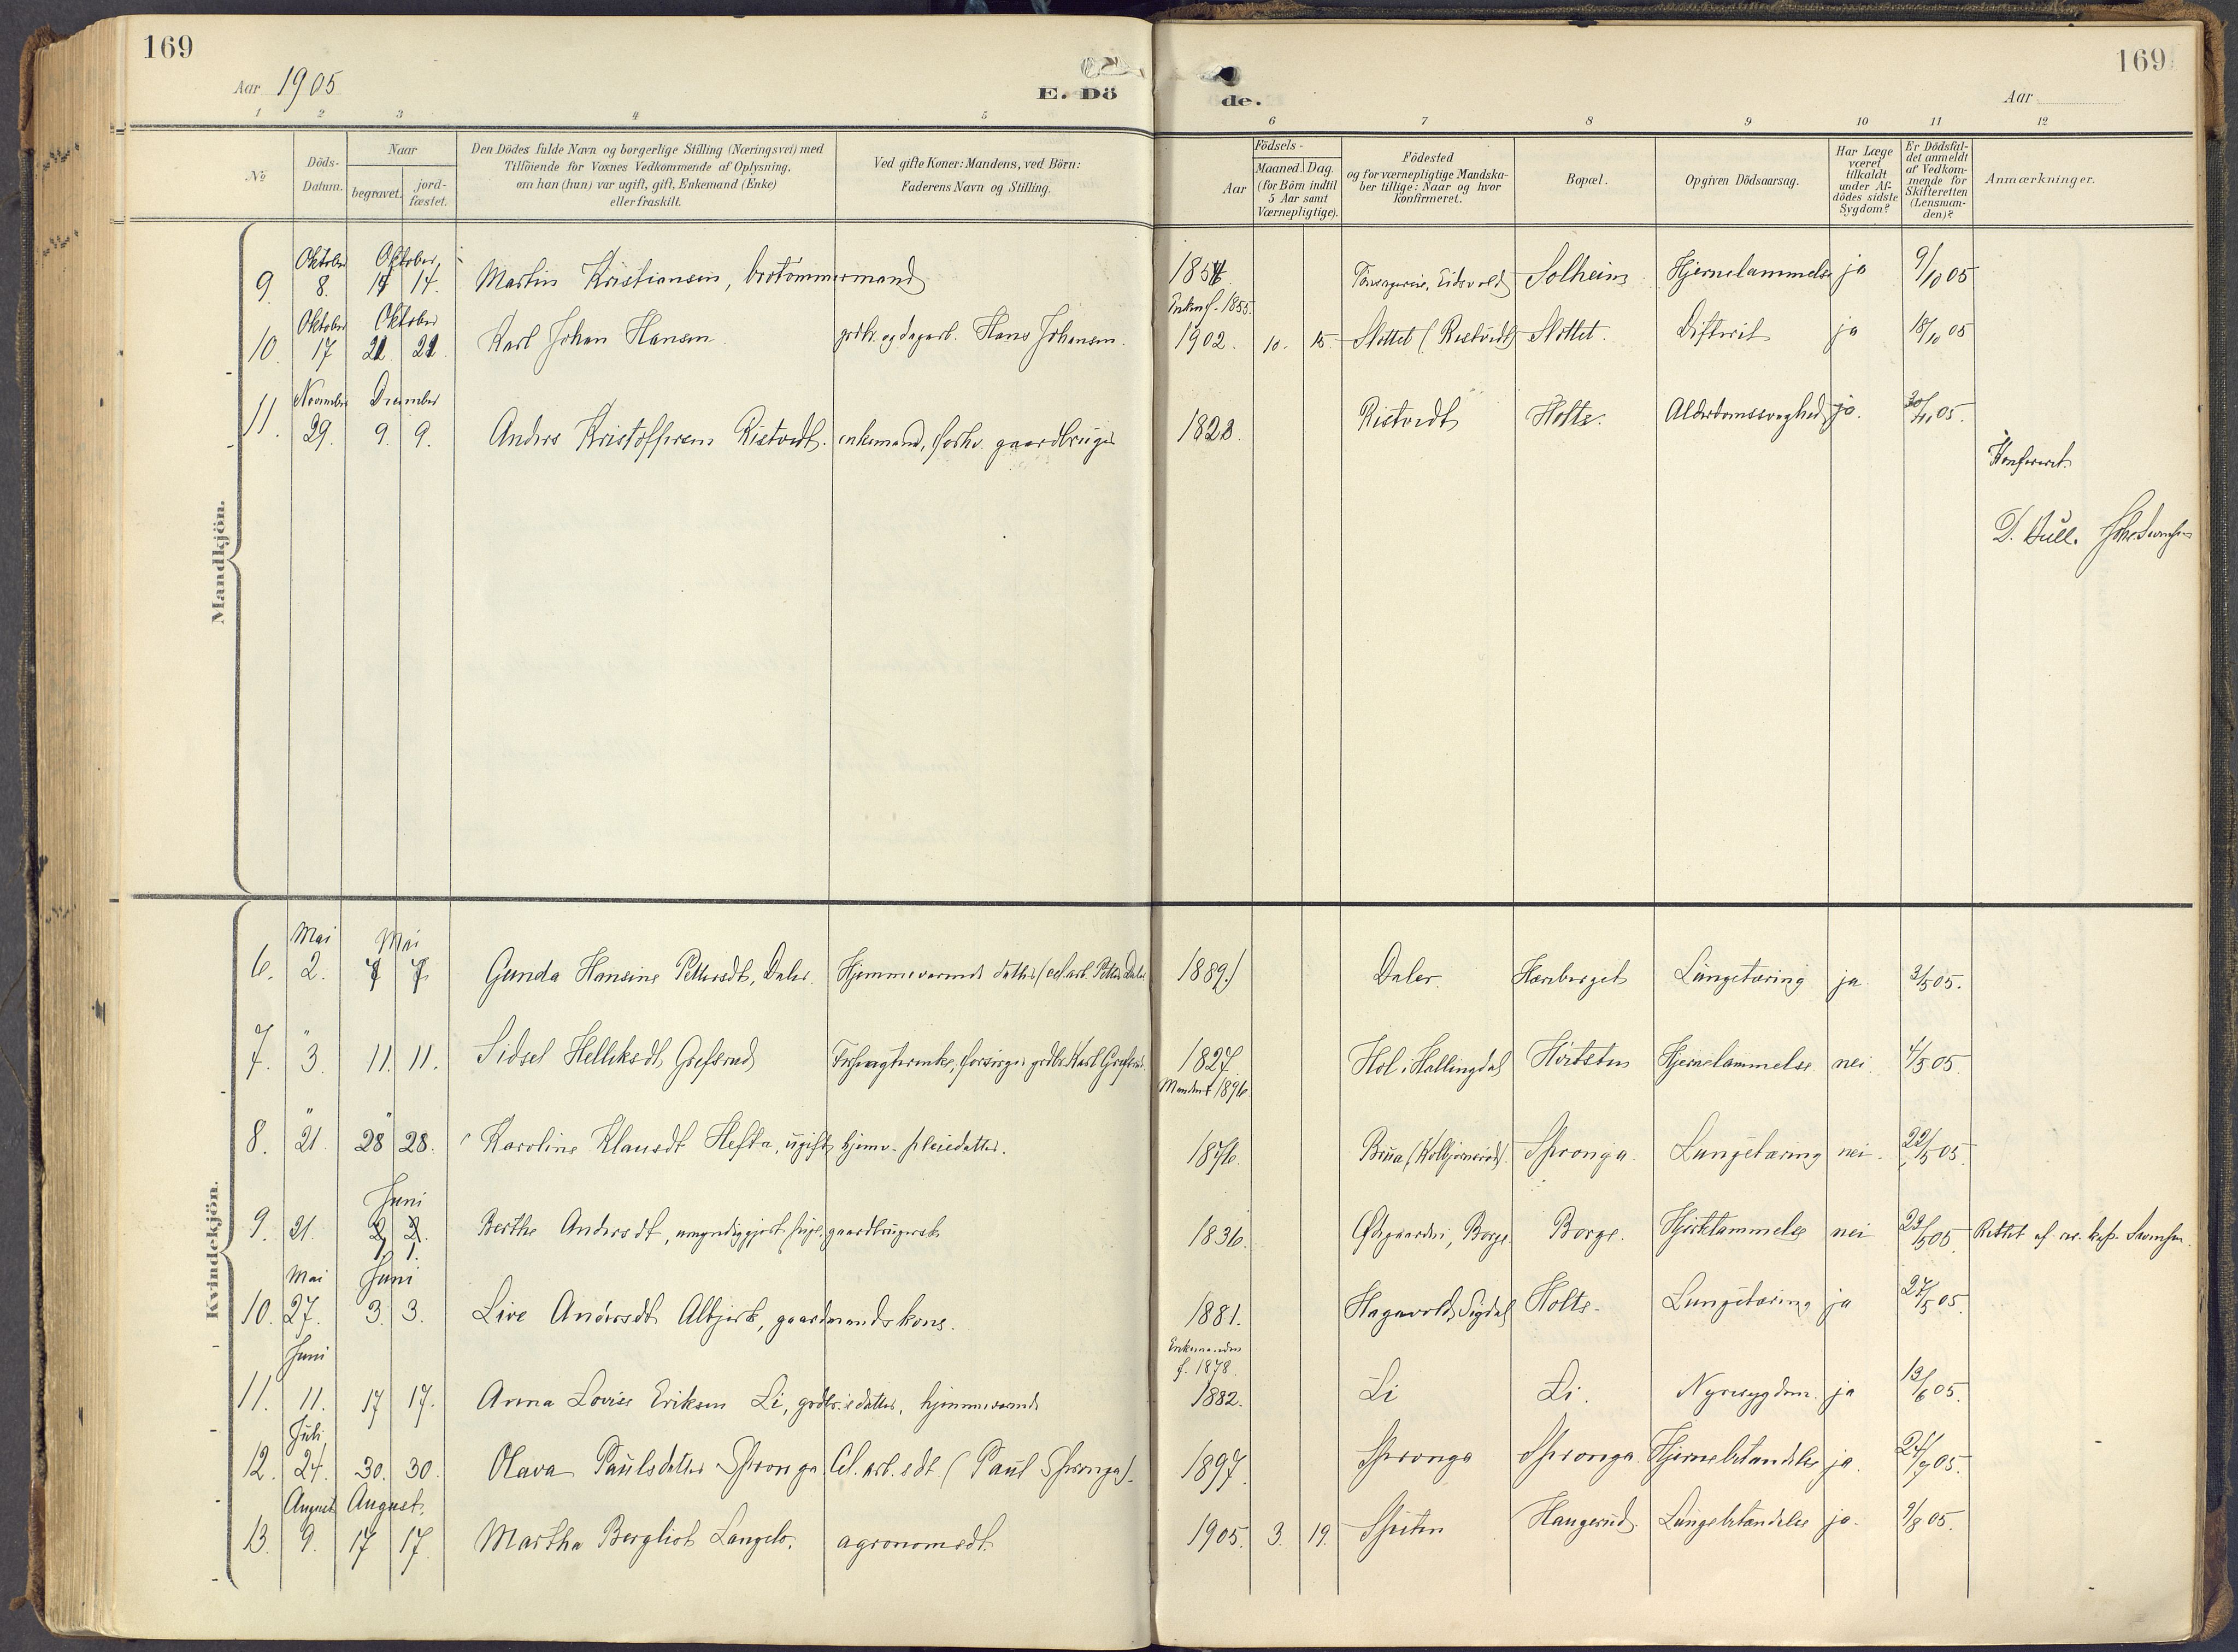 169
169
Aar 1905
E. Dö
de.
Aar
1 2 3 4 5 6 7 8 9 10 11 12
№
Döds-
Datum.
Naar
begravet.
jord-
fæstet.
Den Dödes fulde Navn og borgerlige Stilling (Næringsvei) med
Tilföiende for Voxnes Vedkommende af Oplysning,
om han (hun) var ugift, gift, Enkemand (Enke)
eller fraskilt.
Ved gifte Koner: Mandens, ved Börn:
Faderens Navn og Stilling.
Födsels-
Aar
Maaned. Dag.
(for Börn indtil
5 Aar samt
Værnepligtige).
Födested
og for værnepligtige Mandska-
ber tillige: Naar og hvor
konfirmeret.
Bopæl.
Opgiven Dödsaarsag.
Har Læge
været
tilkaldt
under Af-
dödes sidste
Sygdom?
Er Dödsfal-
det anmeldt
af Vedkom-
mende for
Skifteretten
(Lensman-
den)?
Anmærkninger.
Mandkjön.
Oktober Oktober
9. 8. 14 14. Martin Kristiansen, brotømmermand 1854 Eidsvold Solheim Hjernelammelse ja 9/10 05
Enkens f. 1855.
Oktober Oktober
10. 17 21 21 Karl Johan Hansen. grdbr. og dagarb. Hans Johansen. 1902. 10. 15. Slottet (Ristvedt) Slottet. Difterit ja 18/10 05
November December
11. 29. 9. 9. Anders Kristoffersen Ristvedt. enkemand, forhv. gaardbruger 1828. Ristvedt Holte. Alderdomssvaghed ja. 30/11 05.
Konfereret.
D. Bull.
Kvindekjön.
Mai Mai
6. 2. 7 7. Gunda Hansine Pettersdt, Daler. Hjemmeværende datter (cel. arb. Petter Daler 1889. Daler. Lungetæring ja 3/5 05.
7. " 3. 11. 11. Sidsel Helliksdt Grefsrud 1827. Hol i Hallingdal Hjernelammelse nei. 4/5 05
Mandens f. 1896.
8. " 21. 28 " 28. Karoline Klausdt Hefta, ugift, hjemv. pleiedatter. 1876. Spronga. Lungetæring nei. 22/5 05.
Juni
9. 21. 2. 2. Berthe Andersdt, umyndiggjort, gaardbrugersk. 1836. Borge Borge. Hjertelammelse nei 23/5 05. Rettet af
1. 1.
Mai Juni
10. 27. 3. 3. Live Andersdt Albjerk, gaardmandskone. 1881. Sigdal Holte. Lungetæring ja 27/5 05.
Enkemanden
f. 1878.
Juni
11. 11. 17 17. Anna Lovise Eriksen Li, grdbr.sdatter, hjemmeværende 1882. Li Li. Nyresygdom. ja 13/6 05.
Juli
12. 24. 30. 30. Olava Paulsdatter Spronga Cel. arb. sdt. (Paul Spronga). 1897. Spronga Spronga. Hjernebetændelse ja. 24/7 05.
August August.
13. 9. 17 17. Martha Bergliot Langelo. agronomsdt. 1905. 3. 19. Spiten Haugerud. Lungebetændelse ja. 9/8 05.